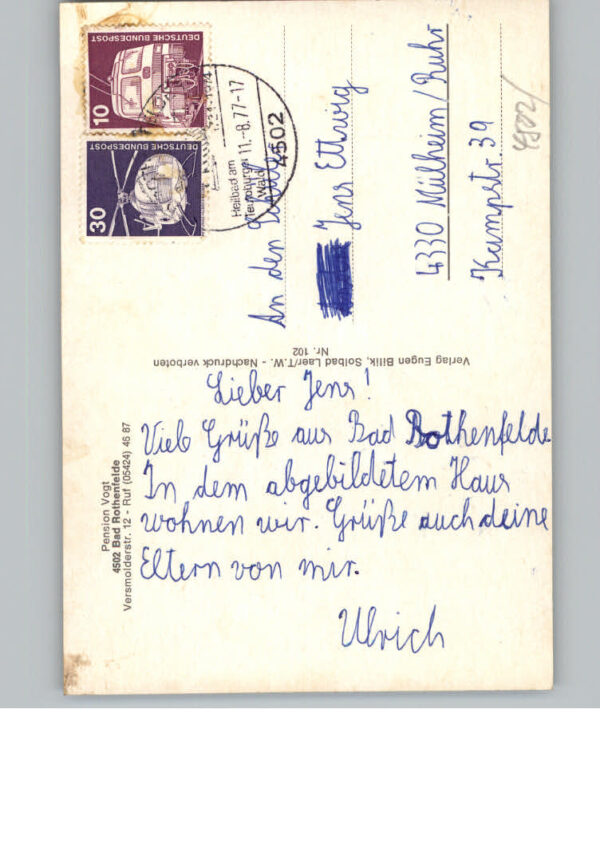 Lieber Jens!
Viele Grüße aus Bad Rothenfelde
In dem abgebildetem Haus
wohnen wir. Grüße auch deine
Eltern von mir.
Ulrich
Pension Vogt
4502 Bad Rothenfelde
Versmolderstr. 12 - Ruf (05424) 46 87
Verlag Eugen Billik, Solbad Laer/T.W. - Nachdruck verboten
Nr. 102
An den Schüler
Jens Ettwig
4330 Mülheim/Ruhr
Kampstr. 39
4502/
DEUTSCHE BUNDESPOST
10
DEUTSCHE BUNDESPOST
30
11.-8.77-17
Heilbad am
Teutoburger
Wald
4502